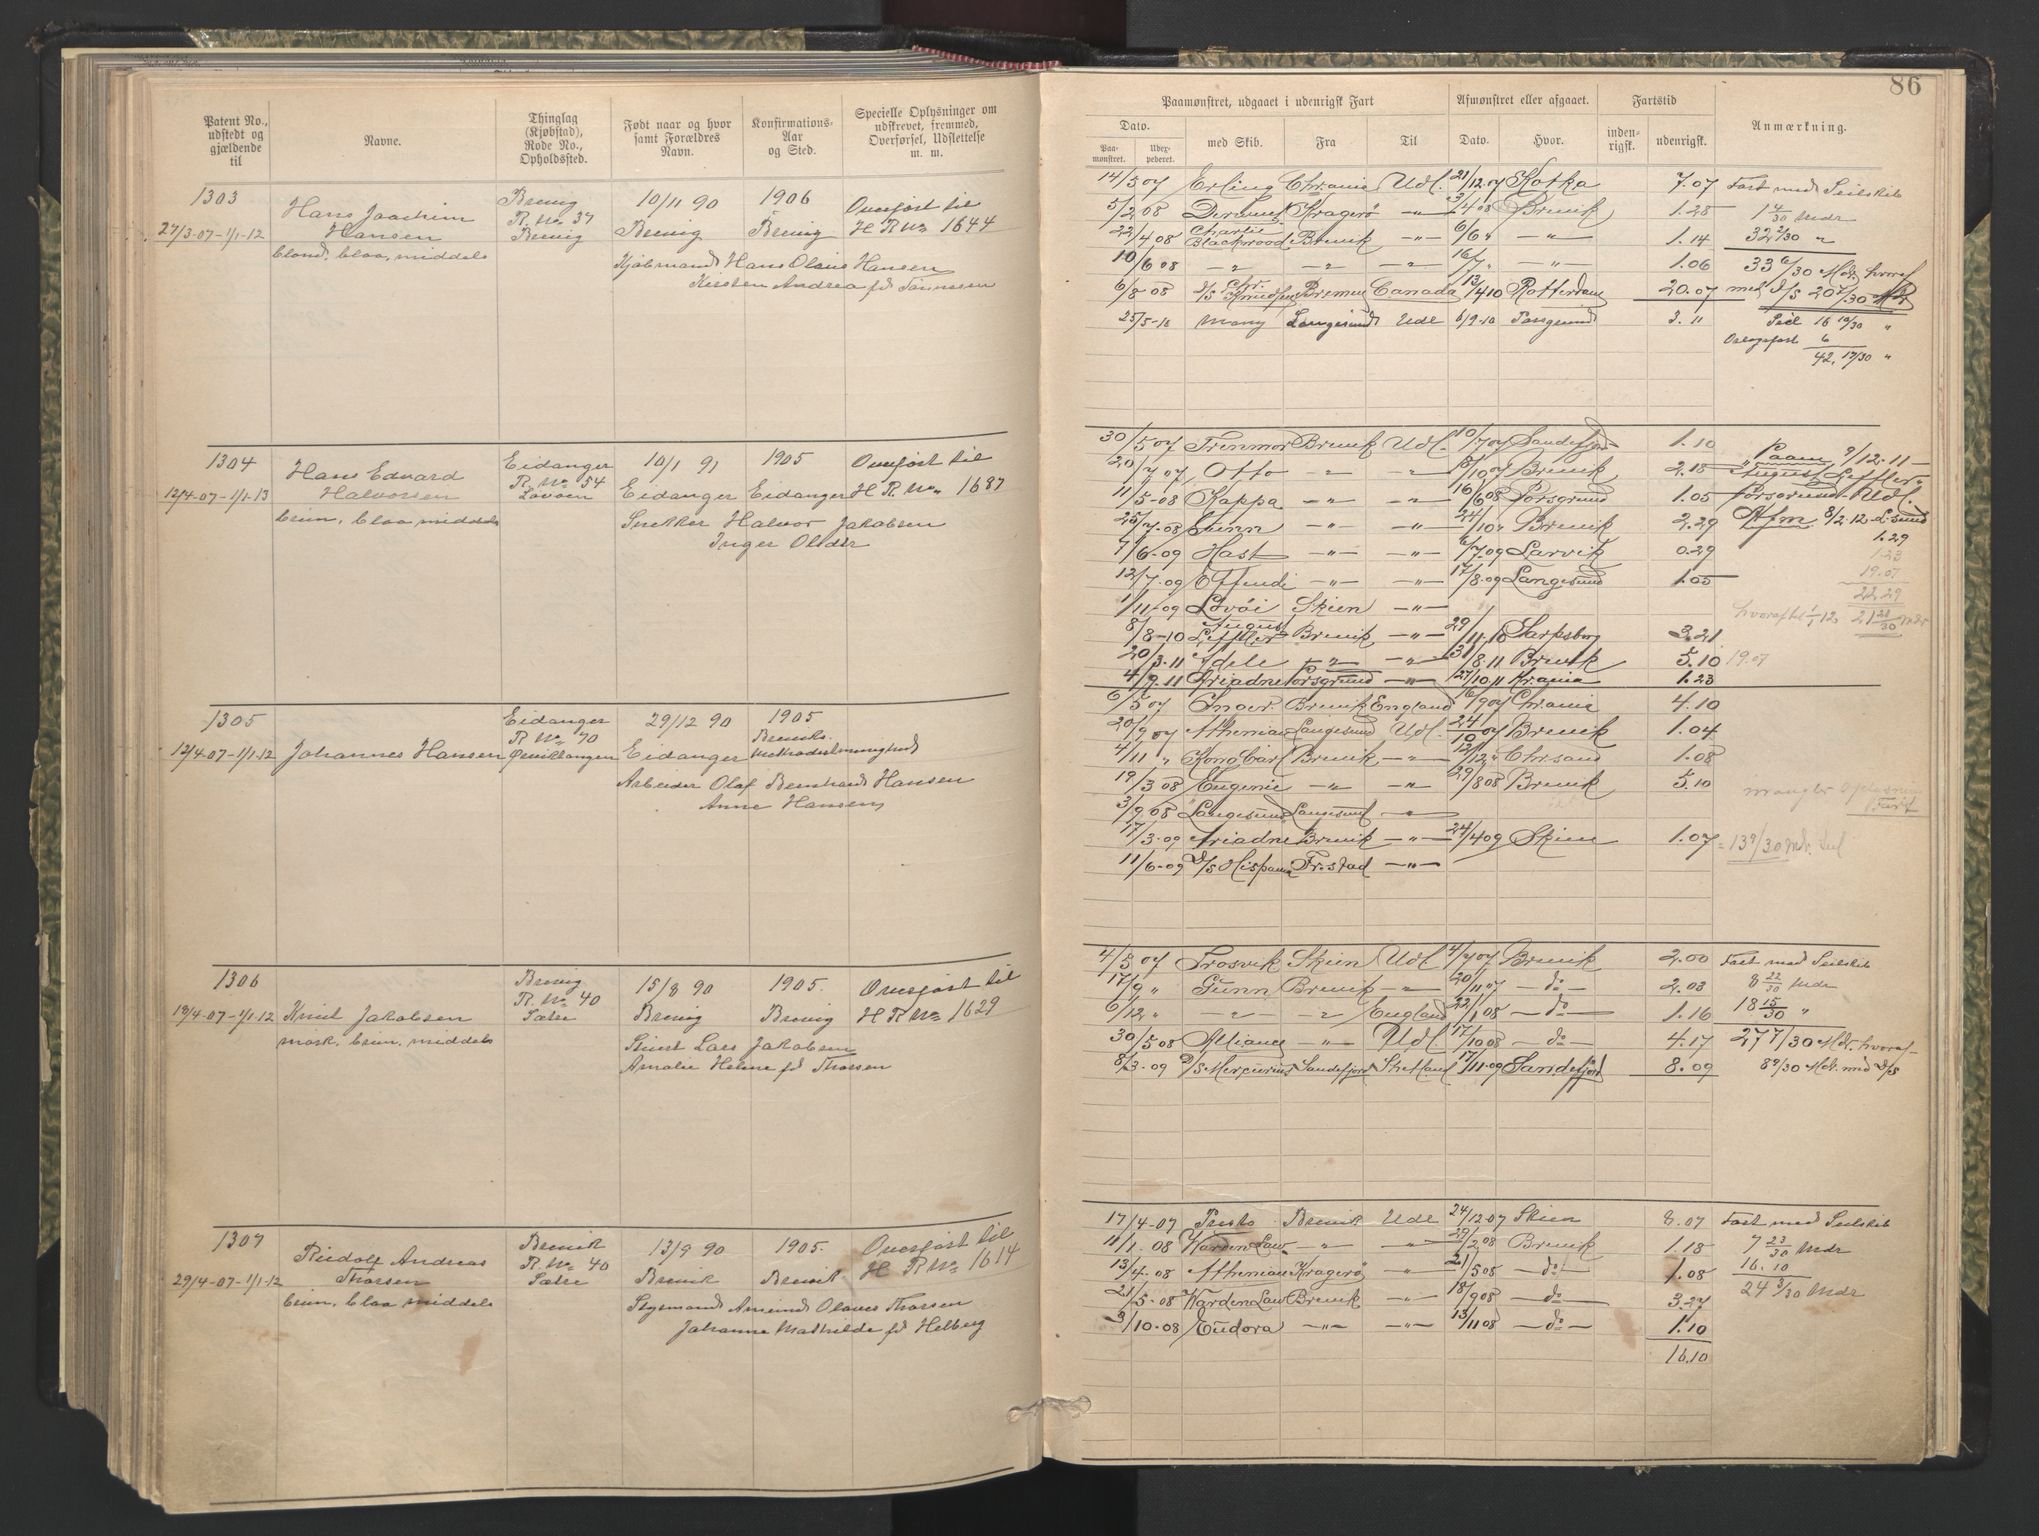 86
Patent No., udstedt og gjældende til
Navne.
Thinglag (Kjøbstad), Rode No., Opholdssted.
Født naar og hvor samt Forældres Navn.
Konfirmations-Aar og Sted.
Specielle Oplysninger om udskrevet, fremmed, Overførsel, Udslettelse m. m.
Paamønstret, udgaaet i udenrigsk Fart
Afmønstret eller afgaaet.
Fartstid
Anmærkning.
Dato.
Paa-mønstret.
Udex-pederet.
med Skib.
Fra
Til
Dato.
Hvor.
inden-rigsk.
udenrigsk.
1303
27/3-07-1/1-12
Hans Joachim Hansen
blond, blaa, middels
Brevig R. No 37 Brevig
10/11 90 Brevig
1906 Brevig
Overført til H R No 1644
Kjøbmand Hans Olaus Hansen
Kirsten Andrea fd Tønnesen
14/5 07 Erling Chrania Udl. 21/12.07 Kotka 7.07
5/2 08 Kragerø -"- Brevik 1.28
22/4 08 Charlie Blackwood Brevik -"- 6/6 " -"- 1.14
10/6 08 -"- -"- -"- 16/7 " -"- 1.06
6/8-08 D/S Chr. Knudsen Bremen Canada 13/4 10 Rotterdam 20.07
25/5-10 Mary Langesund Udl 6/9-10 Porsgrund 3.11
Fart med Seilskib
1 4/30 Mdr
32 2/30 "
33 6/30 Mdr. hvoraf
med D/S 20 7/30 Mdr
Seil 16 10/30 "
Orlogsfart 6
42, 17/30 "
1304
12/4-07-1/1-13
Hans Edvard Halvorsen
brun, blaa middels
Eidanger R. No 54 Løvøen
10/1 91 Eidanger
1905 Eidanger
Overført til H R. No. 1687
Snekker Halvor Jakobsen
Inger Olsdtr
30/5 07 Trenmor Brevik Udl. 10/7 07 Sandefjord 1.10
20/7 07 Otto -"- -"- 8/10 07 Brevik 2.18
11/5-08 Kappa -"- -"- 16/6 08 Porsgrund 1.05
25/7-08 Gunn -"- -"- 24/10 " Brevik 2.29
7/6-09 Hast -"- -"- 6/7.09 Larvik 0.29
12/7.09 Effendi -"- -"- 17/8.09 Langesund 1.05
1/11-09 Løvøi Skien -"-
8/8-10 August Leffler Brevik -"- 29/11.10 Sarpsborg 3.21
20/3.11 Adele -"- -"- 31/8.11 Brevik 5.10
4/9.11 Ariadne Porsgrund -"- 27/10.11 Krania 1.23
Paam 9/12-11
"August Leffler"
Porsgrund-Udl.
Afm. 8/2 12 L.sund
1.29
1.23
19.07
22.29
hvoraf til 1/1 12 21 21/30 mdr
19.07
1305
12/4-07-1/1-12
Johannes Hansen
Eidanger R No 70 Ørviktangen
29/12 90 Eidanger
1905 Breviks Methodistmenighed
Arbeider Olaf Bernhard Hansen
Anne Hansen
6/5 07 Inger Brevik England 6/9 07 Chrania 4.10
20/9 07 Athenian Langesund Udl. 24/10 07 Brevik 1.04
4/11 " Kong Carl Brevik -"- 12/12 " Chrsand 1.08
19/3 08 Eugenie -"- -"- 29/8 08 Brevik 5.10
3/9 08 Langesund Langesund -"-
17/3-09 Ariadne Brevik -"- 24/4 09 Skien 1.07
11/6-09 D/S Hispania Fr.stad -"-
mangler Oplysning
Fart
= 13 9/30 Mdr. Seil
1306
18/4-07-1/1-12
Knut Jakobsen
mørk, brun, middels
Brevig R. No 40 Sætre
15/8 90 Brevig
1905. Brevig
Overført til H R No 1629
Stuert Lars Jakobsen
Amalie Helene fd Thorsen
4/5 07 Frosvik Skien Udl 4/7 07 Brevik 2.00
17/9 " Gunn Brevik -"- 20/11 07 -do- 2.03
6/12 " -"- -"- England 22/1 08 -do- 1.16
30/5 08 Alliance -"- Udl 17/10 08 -do- 4.17
8/3-09 D/S Mercurius Sandefjord Shetland 17/11-09 Sandefjord 8.09
Fart med Seilskib
8 22/30 Mdr
18 15/30 "
27 7/30 Mdr. hvoraf
8 9/30 Mdr. med D/S
1307
29/4-07-1/1-12
Rudolf Andreas Thorsen
brun, blaa middels
Brevik R. No 40 Sætre
13/9 90 Brevik
1905. Brevik
Overført til H R No 1614
Styrmand Amund Olaves Thorsen
Johanne Mathilde fd Helberg
17/4-07 Presto Brevik Udl 24/12.07 Skien 8.07
11/1.08 Warden Law -"- -"- 29/2 08 Brevik 1.18
13/4-08 Athenian Kragerø -"- 21/5 08 -do- 1.08
21/5-08 Warden Law Brevik -"- 18/9 08 -do- 3.27
3/10-08 Eudora -"- -"- 13/11 08 -do- 1.10
16.10
Fart med Seilskib
7 23/30 Mdr
16.10
24 3/30 Mdr